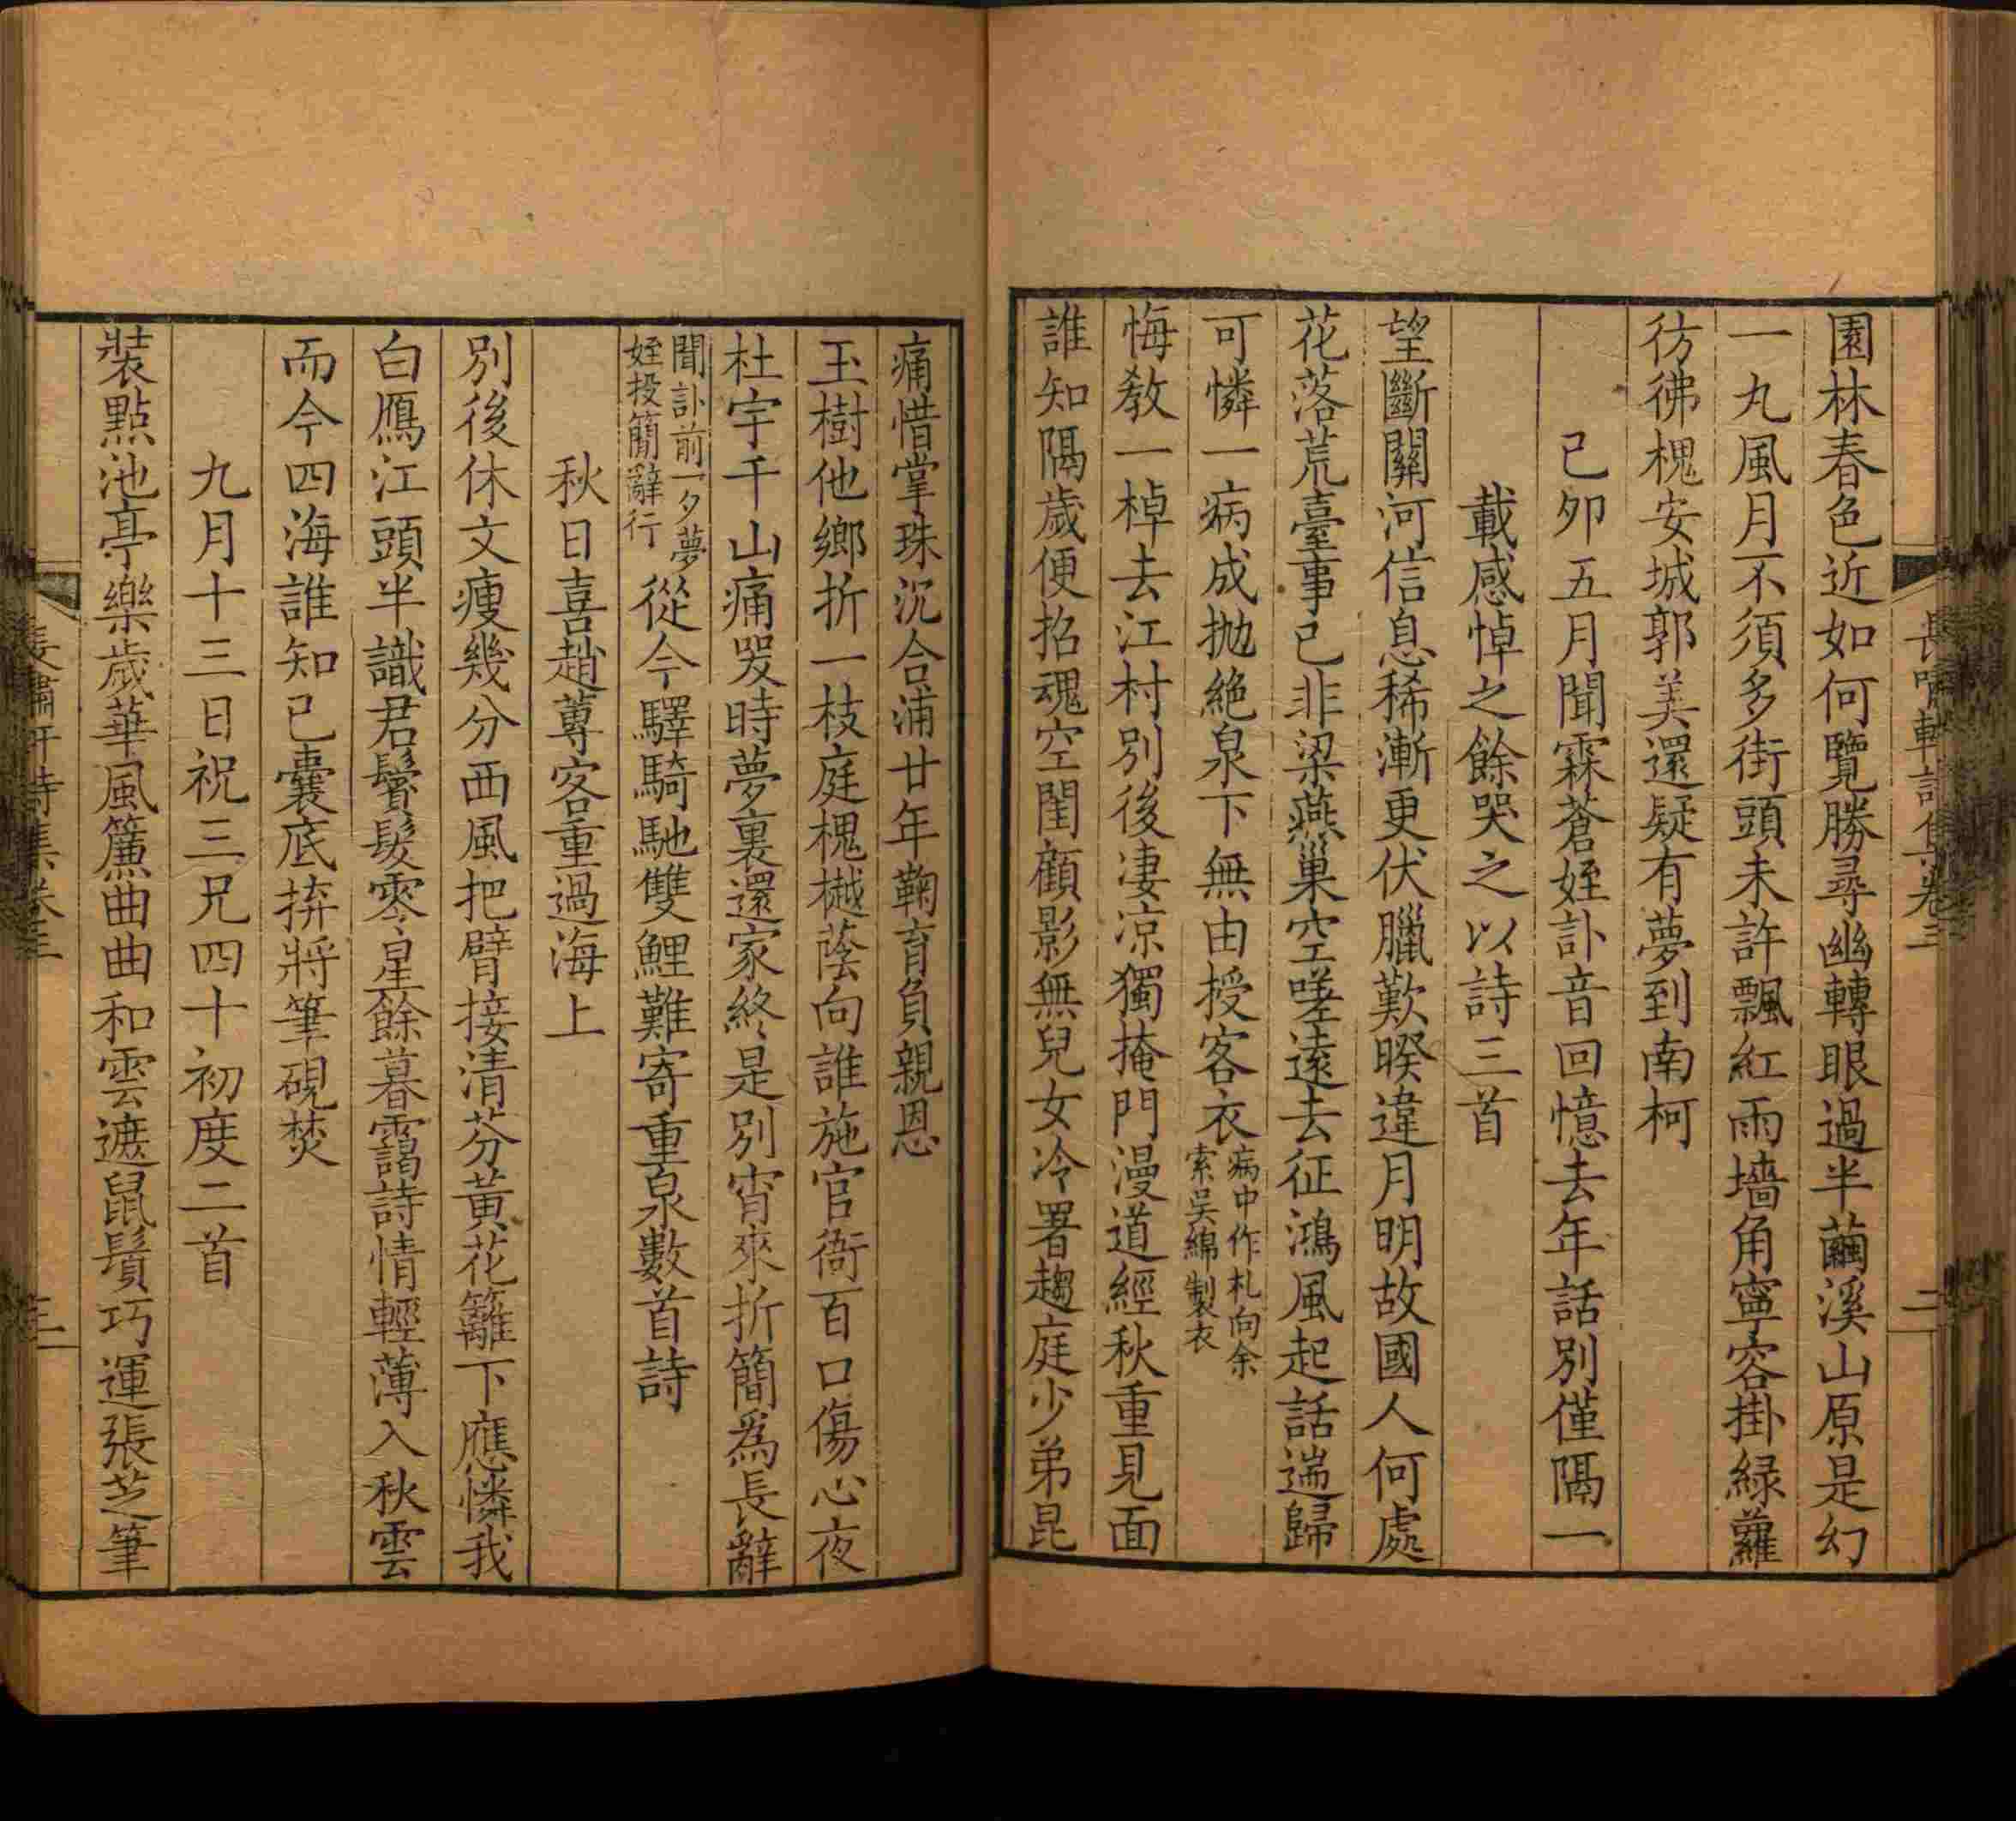 長嘯軒詩集卷三
二
園林春色近如何覽勝尋幽轉眼過半繭溪山原是幻
一丸風月不須多街頭未許飄紅雨墻角寧容掛綠蘿
彷彿槐安城郭美還疑有夢到南柯
己夘五月聞霖蒼姪訃音回憶去年話別僅隔一
載感悼之餘哭之以詩三首
望斷關河信息稀漸更伏臘歎暌違月明故國人何處
花落荒臺事已非梁燕巢空嗟遠去征鴻風起話遄歸
可憐一病成拋絕泉下無由授客衣病中作札向余
索吳綿製衣
悔教一棹去江村別後淒凉獨掩門漫道經秋重見面
誰知隔歲便招魂空閨顧影無兒女冷署趨庭少弟昆
痛惜掌珠沉合浦廿年鞠育負親恩
玉樹他鄉折一枝庭槐樾蔭向誰施官衙百口傷心夜
杜宇千山痛哭時夢裏還家終是別宵來折簡爲長辭
聞訃前一夕夢
姪投簡辭行從今驛騎馳雙鯉難寄重泉數首詩
秋日喜趙蓴客重過海上
別後休文瘦幾分西風把臂接清芬黃花籬下應憐我
白鴈江頭半識君鬢髮零星餘暮靄詩情輕薄入秋雲
而今四海誰知己囊底拚將筆硯焚
九月十三日祝三兄四十初度二首
裝點池亭樂歲華風簾曲曲和雲遮鼠鬚巧運張芝筆
長嘯軒詩集卷三
三